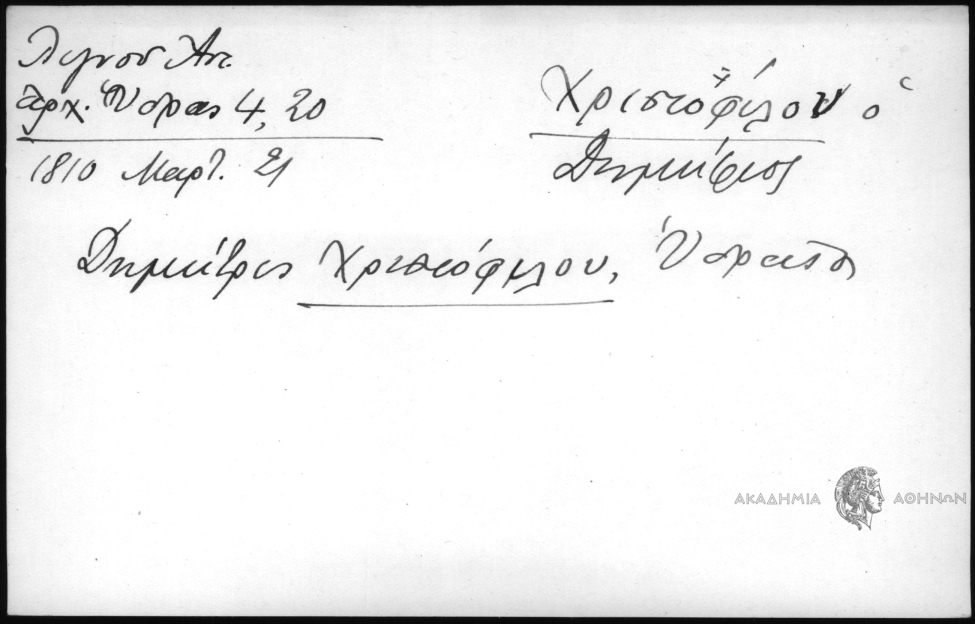 Λιγνού Ἀν.
Ἀρχ. Ὕδρας 4, 20
1810 Μαρτ. 21
Χριστοφίλου ὁ
Δημήτριος
Δημήτρις Χριστόφιλου, Ὑδραῖος
ΑΚΑΔΗΜΙΑ ΑΘΗΝΩΝ